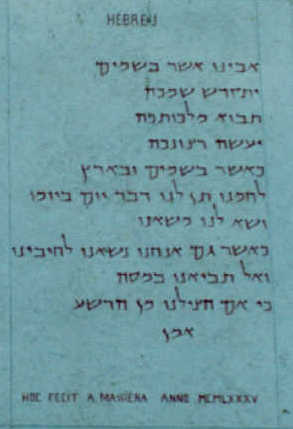 HEBREU
אבינו אשר בשמים
יתקדש שמכה
תבוא מלכותכה
יעשה רצונכה
כאשר בשמים ובארץ
לחמנו תן לנו דבר יום ביומו
ושא לנו משאנו
כאשר גם אנחנו נשאנו לחיבינו
ואל תביאנו במסה
כי אם הצילנו מן הרשע
אמן
HOC FECIT A. ANNO MCMLXXXV